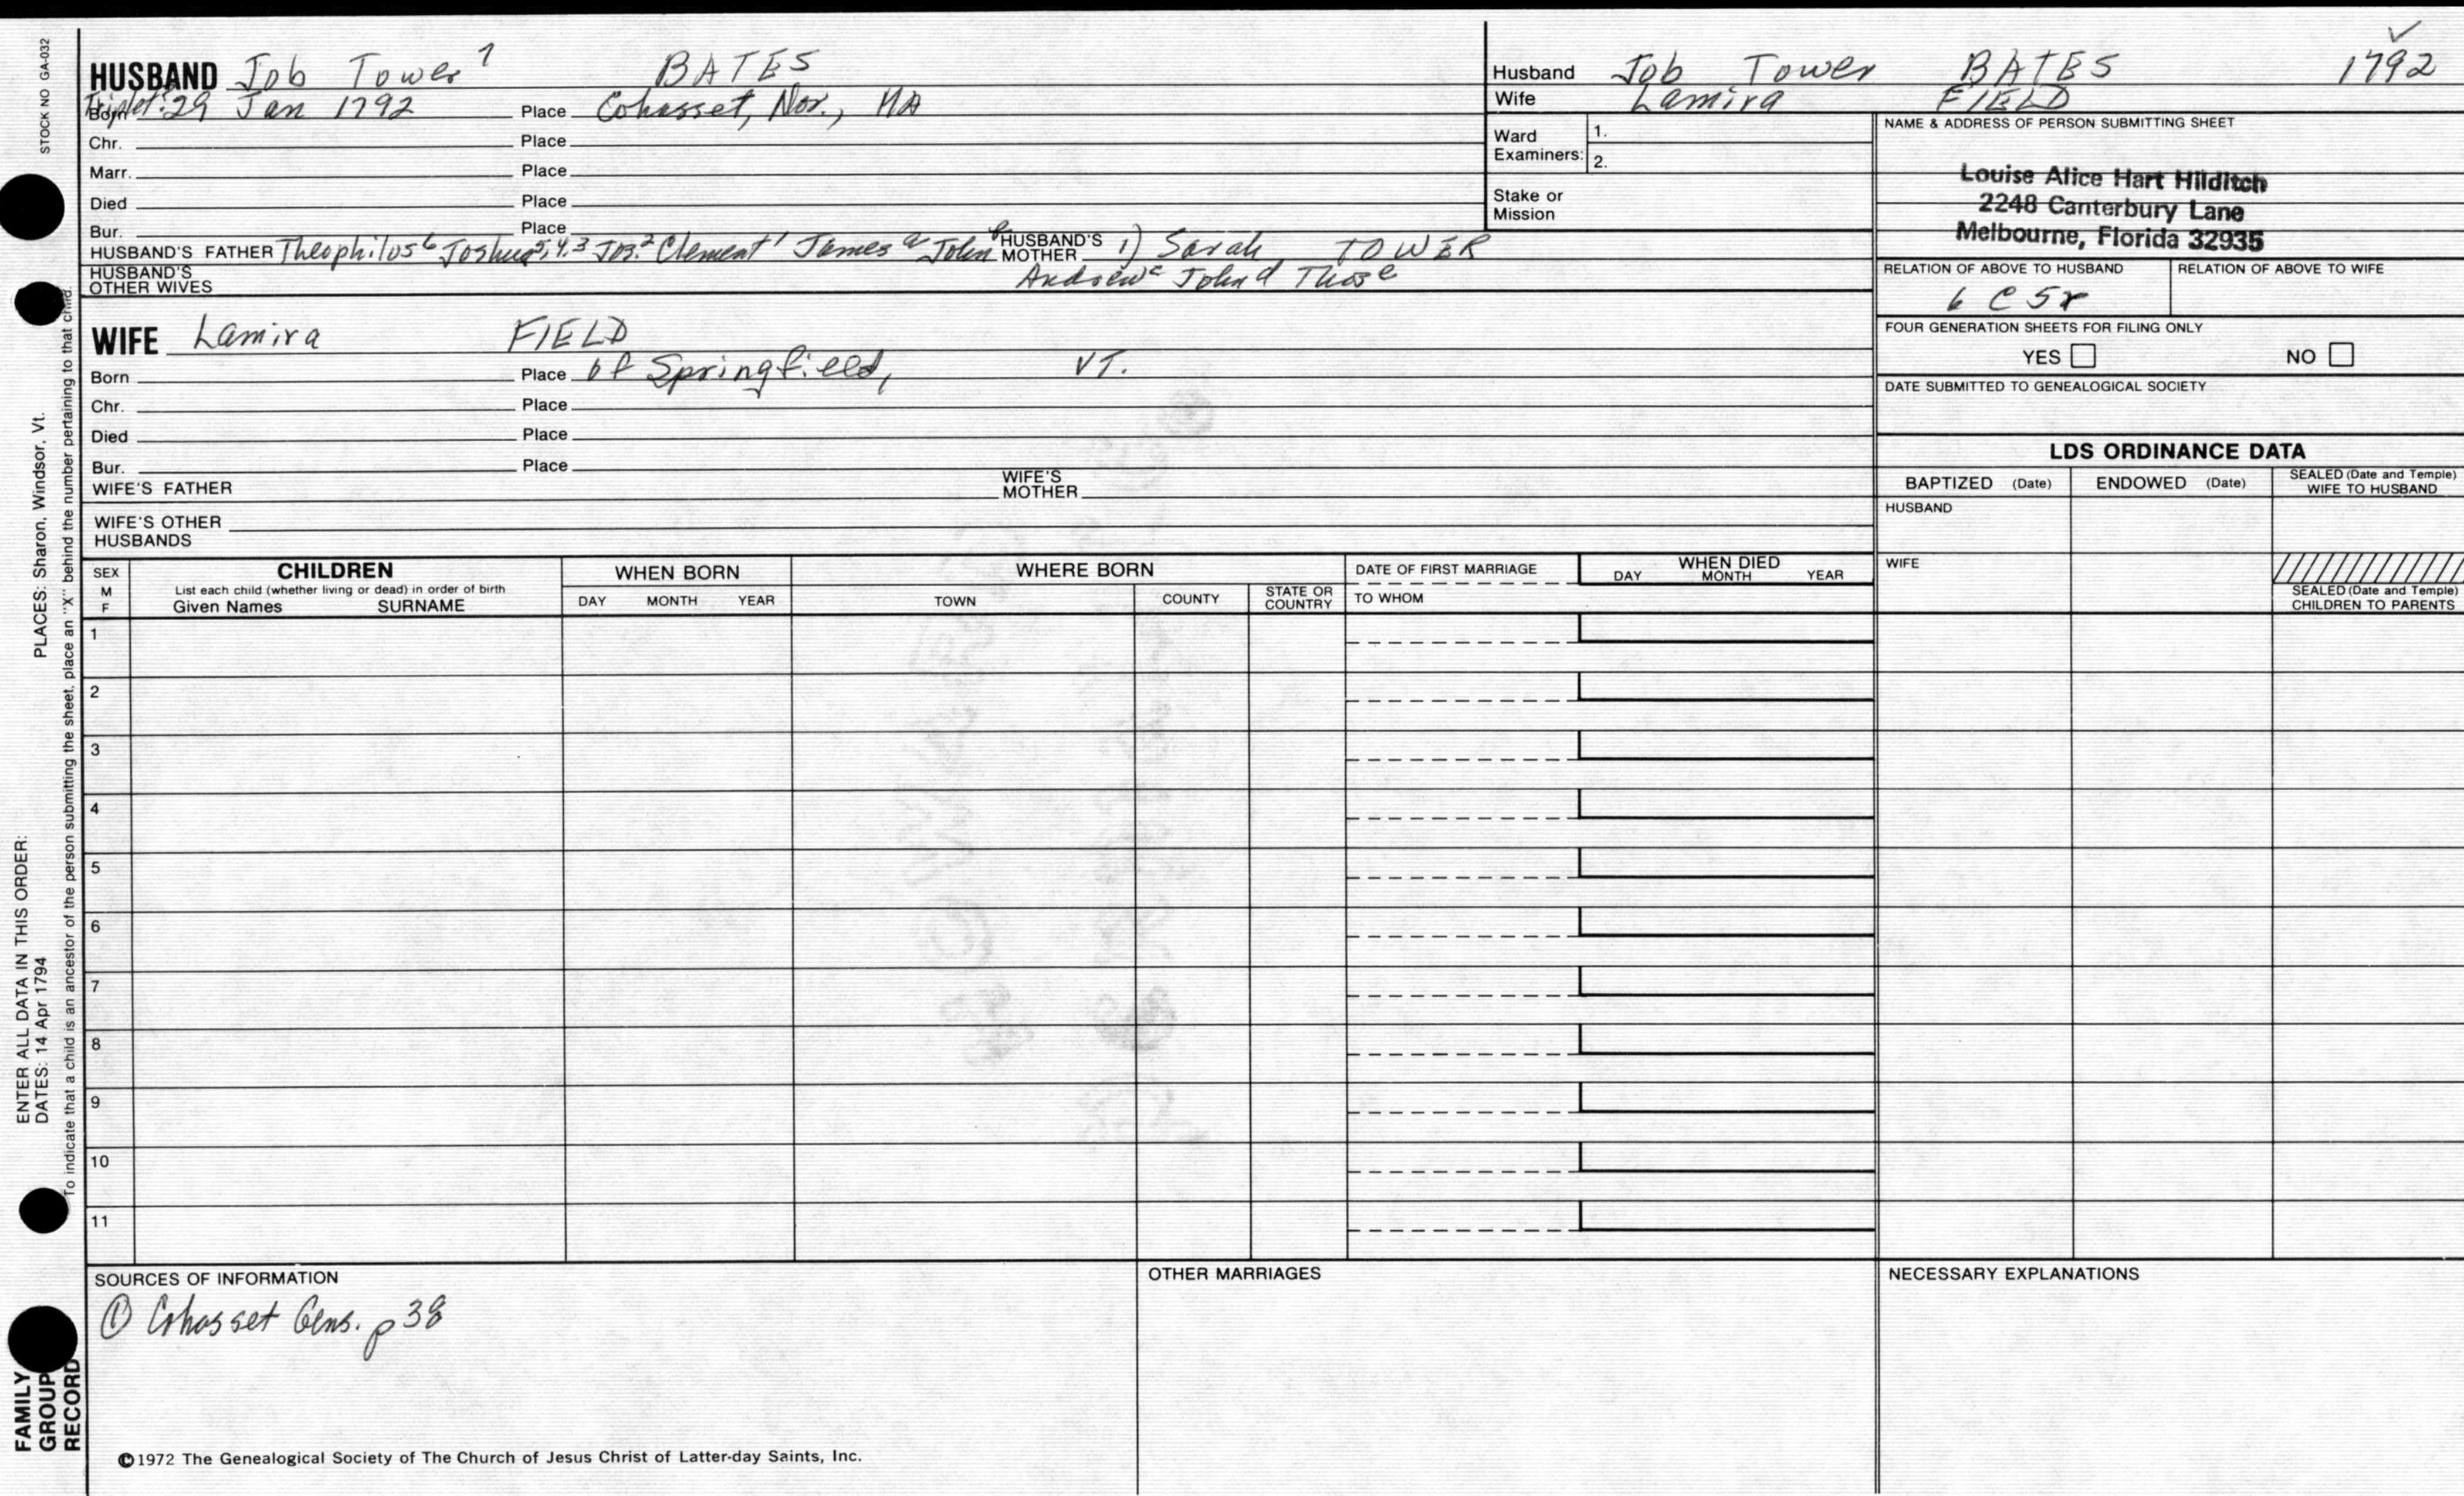 STOCK NO GA-032
HUSBAND Job Tower 7 BATES
Triplet? Born 29 Jan 1792 Place Cohasset, Nor., MA
Chr. Place
Marr. Place
Died Place
Bur. Place
HUSBAND'S FATHER Theophilus6 Joshua5,4,3 Jos.2 Clement1 James a John b HUSBAND'S MOTHER 1) Sarah TOWER
HUSBAND'S OTHER WIVES Andrew c John d Thos e
WIFE Lamira FIELD
Born Place of Springfield, VT.
Chr. Place
Died Place
Bur. Place
WIFE'S FATHER WIFE'S MOTHER
WIFE'S OTHER HUSBANDS
Husband Job Tower BATES 1792 ✓
Wife Lamira FIELD
Ward Examiners: 1.
2.
Stake or Mission
NAME & ADDRESS OF PERSON SUBMITTING SHEET
Louise Alice Hart Hilditch
2248 Canterbury Lane
Melbourne, Florida 32935
RELATION OF ABOVE TO HUSBAND RELATION OF ABOVE TO WIFE
6 C 5r
FOUR GENERATION SHEETS FOR FILING ONLY
YES NO
DATE SUBMITTED TO GENEALOGICAL SOCIETY
LDS ORDINANCE DATA
BAPTIZED (Date) ENDOWED (Date) SEALED (Date and Temple) WIFE TO HUSBAND
HUSBAND
WIFE
SEALED (Date and Temple) CHILDREN TO PARENTS
SEX M F
CHILDREN
List each child (whether living or dead) in order of birth
Given Names SURNAME
WHEN BORN
DAY MONTH YEAR
WHERE BORN
TOWN COUNTY STATE OR COUNTRY
DATE OF FIRST MARRIAGE
TO WHOM
WHEN DIED
DAY MONTH YEAR
1
2
3
4
5
6
7
8
9
10
11
SOURCES OF INFORMATION
① Cohasset Gens. p 38
OTHER MARRIAGES
NECESSARY EXPLANATIONS
©1972 The Genealogical Society of The Church of Jesus Christ of Latter-day Saints, Inc.
ENTER ALL DATA IN THIS ORDER:
DATES: 14 Apr 1794 PLACES: Sharon, Windsor, Vt.
To indicate that a child is an ancestor of the person submitting the sheet, place an "X" behind the number pertaining to that child.
FAMILY
GROUP
RECORD